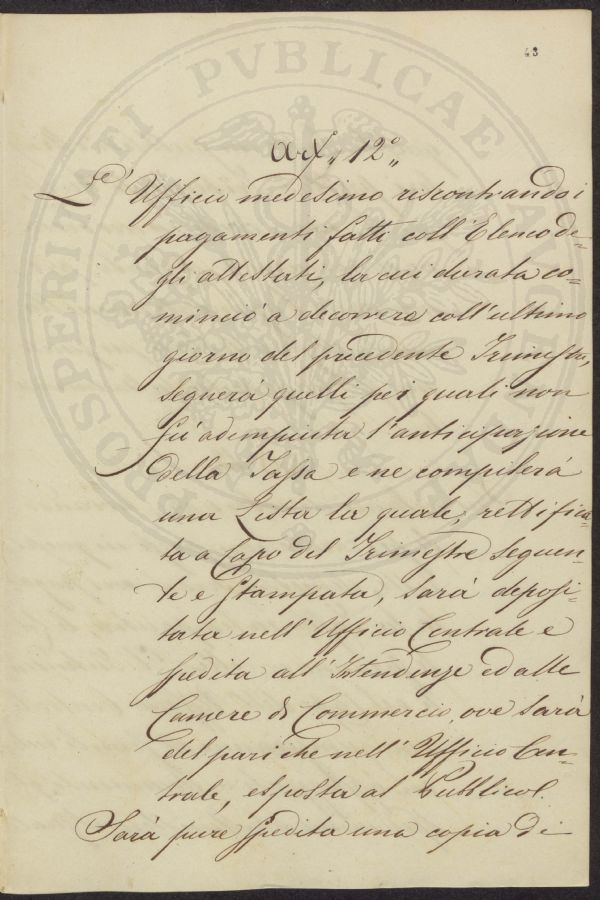 43
PROSPERITATI PVBLICAE
Art„ 12°„
L'Ufficio medesimo riscontrando i
pagamenti fatti coll'Elenco de-
gli attestati, la cui durata co-
minciò a decorrere coll'ultimo
giorno del precedente Trimestre,
segnerà quelli pei quali non
fù adempiuta l'anticipazione
della Tassa e ne compilerà
una Lista la quale, rettifica-
ta a Capo del Trimestre seguen-
te e Stampata, sarà deposi-
tata nell'Ufficio Centrale e
spedita all'Intendenze ed alle
Camere di Commercio, ove sarà
del pari che nell'Ufficio Cen-
trale, esposta al Pubblico.
Sarà pure spedita una copia di